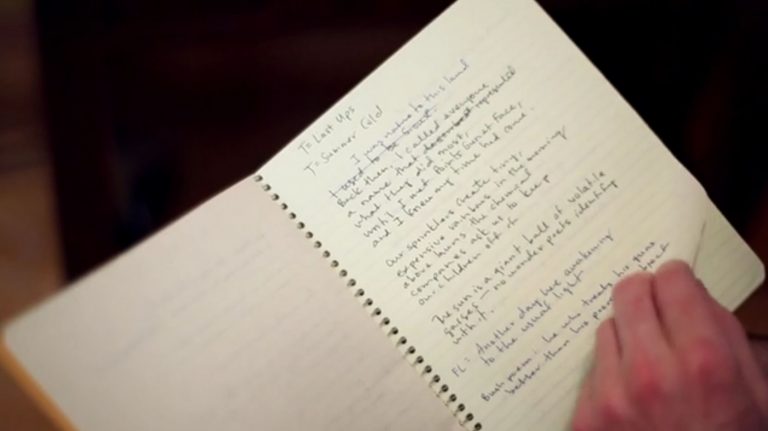 T= Last Ups
T= Summer Cold
I was native to this land
I used to be
Back then, I called everyone
a name that represented
what they did most,
until I met Points Gun at Face,
and I knew my time had come.
Our sprinklers create tiny,
expensive rainbows in the morning
above lawns the chemical
companies ask us to keep
our children off of.
The sun is a giant ball of volatile
gasses — no wonder poets identify
with it.
FL = Another day, live awakening
to the usual light
Bush poem: he who treats his guns
better than his